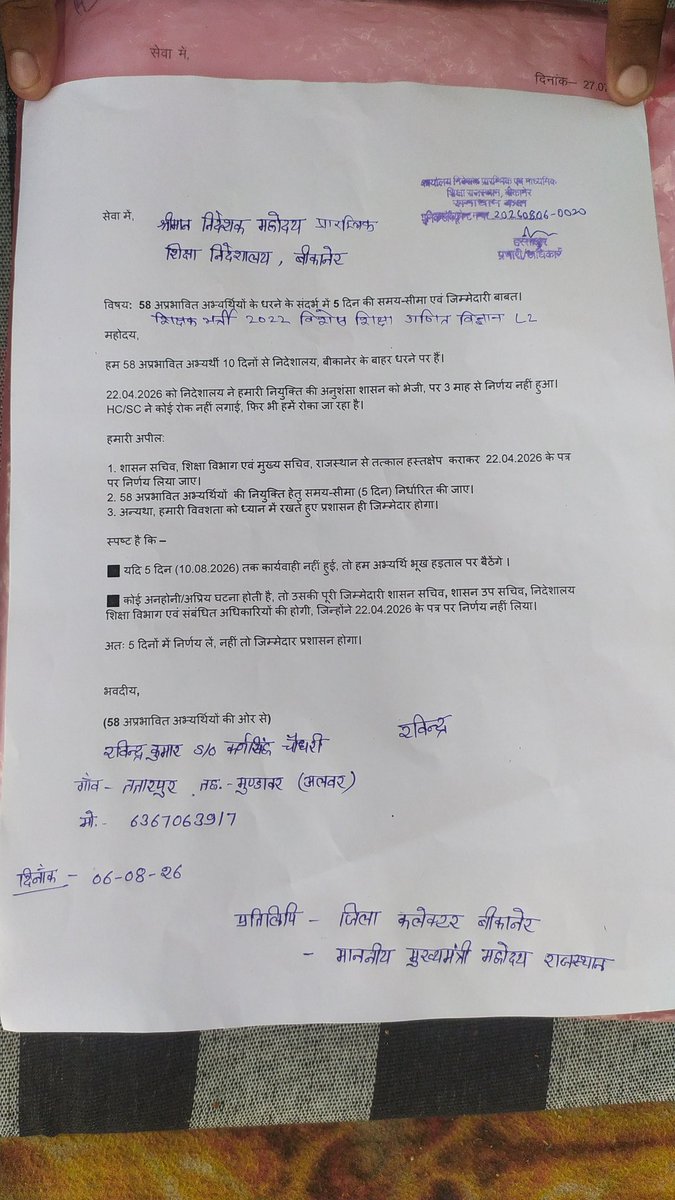 सेवा में,
दिनांक– 27.0
कार्यालय निदेशक प्रारम्भिक एवं माध्यमिक
शिक्षा राजस्थान, बीकानेर
समाधान कक्ष
20260806-0020
हस्ताक्षर
प्रभारी/अधिकारी
सेवा में,
श्रीमान निदेशक महोदय प्रारम्भिक
शिक्षा निदेशालय, बीकानेर
विषय: 58 अप्रभावित अभ्यर्थियों के धरने के संदर्भ में 5 दिन की समय-सीमा एवं जिम्मेदारी बाबत।
शिक्षक भर्ती 2022 विशेस शिक्षा गणित विज्ञान L2
महोदय,
हम 58 अप्रभावित अभ्यर्थी 10 दिनों से निदेशालय, बीकानेर के बाहर धरने पर हैं।
22.04.2026 को निदेशालय ने हमारी नियुक्ति की अनुशंसा शासन को भेजी, पर 3 माह से निर्णय नहीं हुआ।
HC/SC ने कोई रोक नहीं लगाई, फिर भी हमें रोका जा रहा है।
हमारी अपील:
1. शासन सचिव, शिक्षा विभाग एवं मुख्य सचिव, राजस्थान से तत्काल हस्तक्षेप कराकर 22.04.2026 के पत्र
पर निर्णय लिया जाए।
2. 58 अप्रभावित अभ्यर्थियों की नियुक्ति हेतु समय-सीमा (5 दिन) निर्धारित की जाए।
3. अन्यथा, हमारी विवशता को ध्यान में रखते हुए प्रशासन ही जिम्मेदार होगा।
स्पष्ट है कि –
यदि 5 दिन (10.08.2026) तक कार्यवाही नहीं हुई, तो हम अभ्यर्थि भूख हड़ताल पर बैठेंगे ।
कोई अनहोनी/अप्रिय घटना होती है, तो उसकी पूरी जिम्मेदारी शासन सचिव, शासन उप सचिव, निदेशालय
शिक्षा विभाग एवं संबंधित अधिकारियों की होगी, जिन्होंने 22.04.2026 के पत्र पर निर्णय नहीं लिया।
अतः 5 दिनों में निर्णय लें, नहीं तो जिम्मेदार प्रशासन होगा।
भवदीय,
(58 अप्रभावित अभ्यर्थियों की ओर से)
रविन्द्र
रविन्द्र कुमार S/O कर्णसिंह चौधरी
गाँव - ततारपुर तह.- मुण्डावर (अलवर)
मो.- 6367063917
दिनाँक - 06-08-26
प्रतिलिपि - जिला कलेक्टर बीकानेर
- माननीय मुख्यमंत्री महोदय राजस्थान